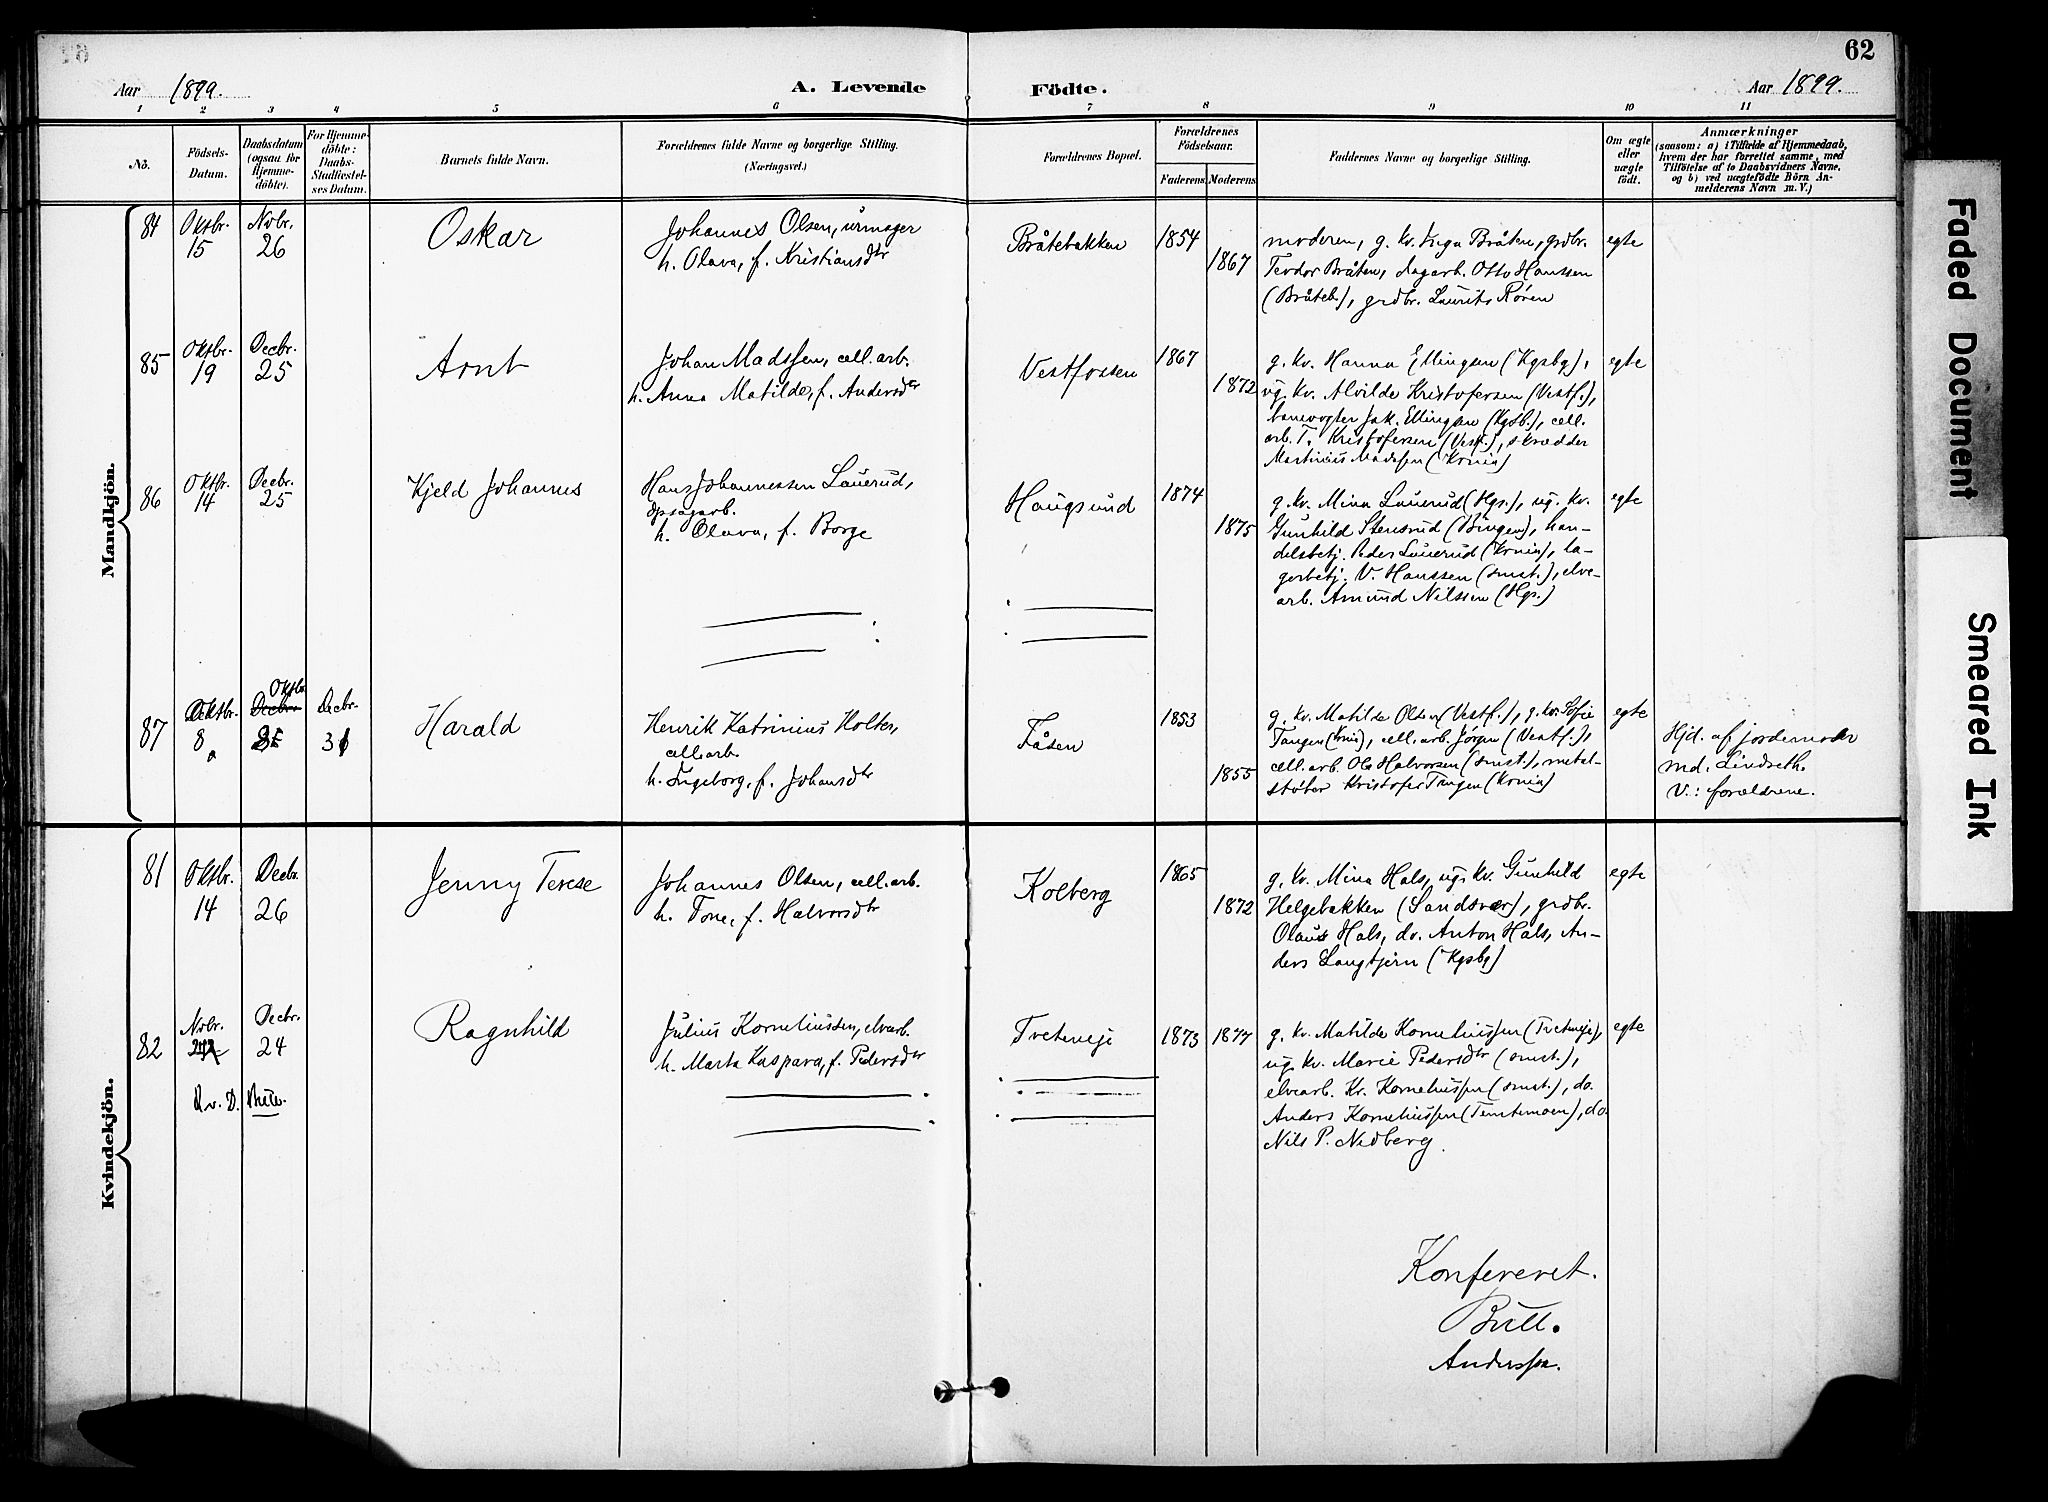 62
Aar 1899.
A. Levende Födte.
Aar 1899.
1 2 3 4 5 6 7 8 9 10 11
No.
Födsels-Datum.
Daabsdatum (ogsaa for Hjemme-döbte).
For Hjemme-döbte: Daabs-Stadfæstel-ses Datum.
Barnets fulde Navn.
Forældrenes fulde Navne og borgerlige Stilling.
(Næringsvei.)
Forældrenes Bopæl.
Forældrenes Födselsaar.
Faderens. Moderens.
Faddernes Navne og borgerlige Stilling.
Om ægte eller uægte födt.
Anmærkninger
(saasom: a) i Tilfælde af Hjemmedaab,
hvem der har forrettet samme, med
Tilföielse af to Daabsvidners Navne,
og b) ved uægtefödte Börn An-
melderens Navn m. V.)
Mandkjön.
84 Oktbr. 15 Novbr. 26
Oskar
Johannes Olsen, urmager
h. Olava, f. Kristiansdtr
Bråtebakken
1854
1867
moderen, g. kv. Inga Bråten, grdbr.
Teodor Bråten, dagarb. Otto Hanssen
(Bråteb.), grdbr. Laurits Røren
egte
85 Oktbr. 19 Decbr. 25
Arnt
Johan Madssen, cell. arb.
h. Anna Matilde, f. Andersdtr
Vestfossen
1867
1872
g. kv. Hanna Ellingsen (Kgsbg),
ug. kv. Alvilde Kristofersen (Vestf.),
banevogter Jak. Ellingsen (Kgsb.), cell.
arb. T. Kristofersen (Vestf.), skrædder
Martinius Madssen (Krnia)
egte
86 Oktbr. 14 Decbr. 25
Kjeld Johannes
Hans Johannessen Lauerud,
dpsagarb.
h. Olava, f. Borge
Haugsund
1874
1875
g. kv. Mina Lauerud (Hgs.), ug. kv.
Gunhild Stensrud (Bingen), han-
delsbetj. Peder Lauerud (Krnia), la-
gerbetj. V. Hanssen (smst.), elve-
arb. Amund Nilssen (Hgs.)
egte
87 Oktbr. 8 Oktbr. Decbr. Decbr. 31
Harald
Henrik Katrinius Holter,
cell. arb.
h. Ingeborg, f. Johansdtr
Fåsen
1853
1855
g. kv. Matilde Olsen (Vestf.), g. kv. Sofie
Tangen (Krnia), cell. arb. Jørgen (Vestf.),
cell. arb. Ole Halvorsen (smst.), metal-
støber Kristofer Tangen (Krnia)
egte
Hjd. af jordemoder
md. Lindseth.
V.: forældrene.
Kvindekjön.
81 Oktbr. 14 Decbr. 26
Jenny Terese
Johannes Olsen, cell. arb.
h. Tone, f. Halvorsdtr
Kolberg
1865
1872
g. kv. Mina Hals, ug. kv. Gunhild
Helgebakken (Sandsvær), grdbr.
Olaus Hals, do. Anton Hals, An-
ders Langtjern (Kgsbg)
egte
82 Novbr. Decbr. 24
Ragnhild
Julius Korneliussen, elvearb.
h. Marta Kaspara, f. Pedersdtr
Tveteneje
1873 1877
g. kv. Matilde Korneliussen (Tveteneje),
ug. kv. Marie Pedersdtr (smst.),
elvearb. Kr. Korneliussen (smst.), do.
Anders Korneliussen (Temtemoen), do.
Nils P. Nedberg.
egte
Konfereret.
Bull.
Anderssen.
Faded Document
Smeared Ink